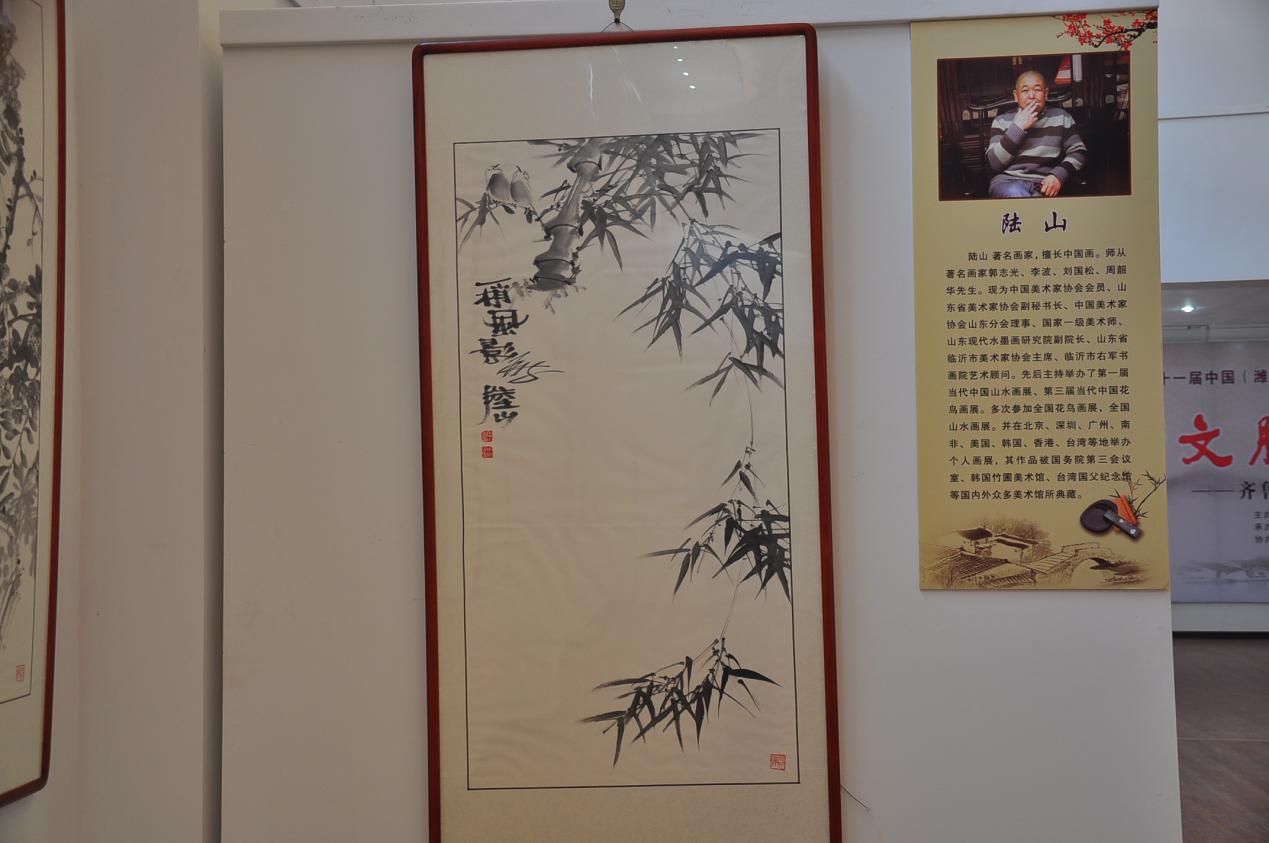 雨風影
陸山
陆 山
陆山 著名画家，擅长中国画。师从
著名画家郭志光、李波、刘国松、周韶
华先生。现为中国美术家协会会员、山
东省美术家协会副秘书长、中国美术家
协会山东分会理事、国家一级美术师、
山东现代水墨画研究院副院长、山东省
临沂市美术家协会主席、临沂市右军书
画院艺术顾问。先后主持举办了第一届
当代中国山水画展、第三届当代中国花
鸟画展。多次参加全国花鸟画展，全国
山水画展。并在北京、深圳、广州、南
非、美国、韩国、香港、台湾等地举办
个人画展，其作品被国务院第三会议
室、韩国竹圃美术馆、台湾国父纪念馆
等国内外众多美术馆所典藏。
十一届中国（潍
文
——齐鲁
主办
承办
协办